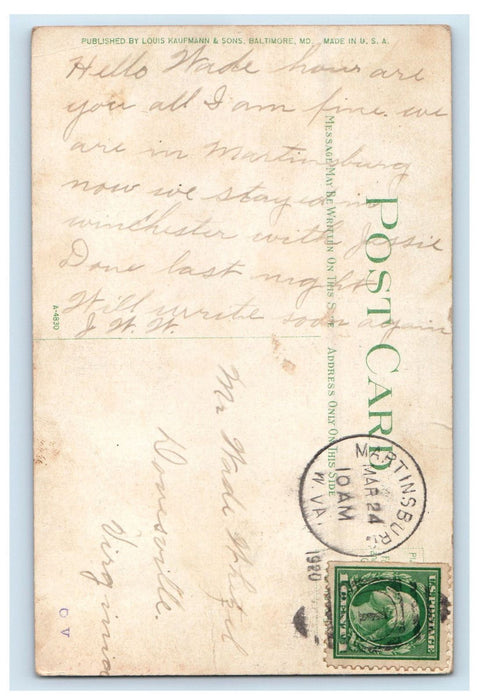 PUBLISHED BY LOUIS KAUFMANN & SONS, BALTIMORE, MD. MADE IN U. S. A.
Hello Wade how are
you all I am fine. we
are in Martinsburg
now we stayed in
winchester with Jessie
Dove last night
Will write soon again
J. W. W.
A-4830
POST CARD
MESSAGE MAY BE WRITTEN ON THIS SIDE
ADDRESS ONLY ON THIS SIDE
Mr Wade Whetzel
Dovesville.
Virginia
MARTINSBURG
MAR 24
10 AM
W. VA.
1920
U.S. POSTAGE
1 CENT 1